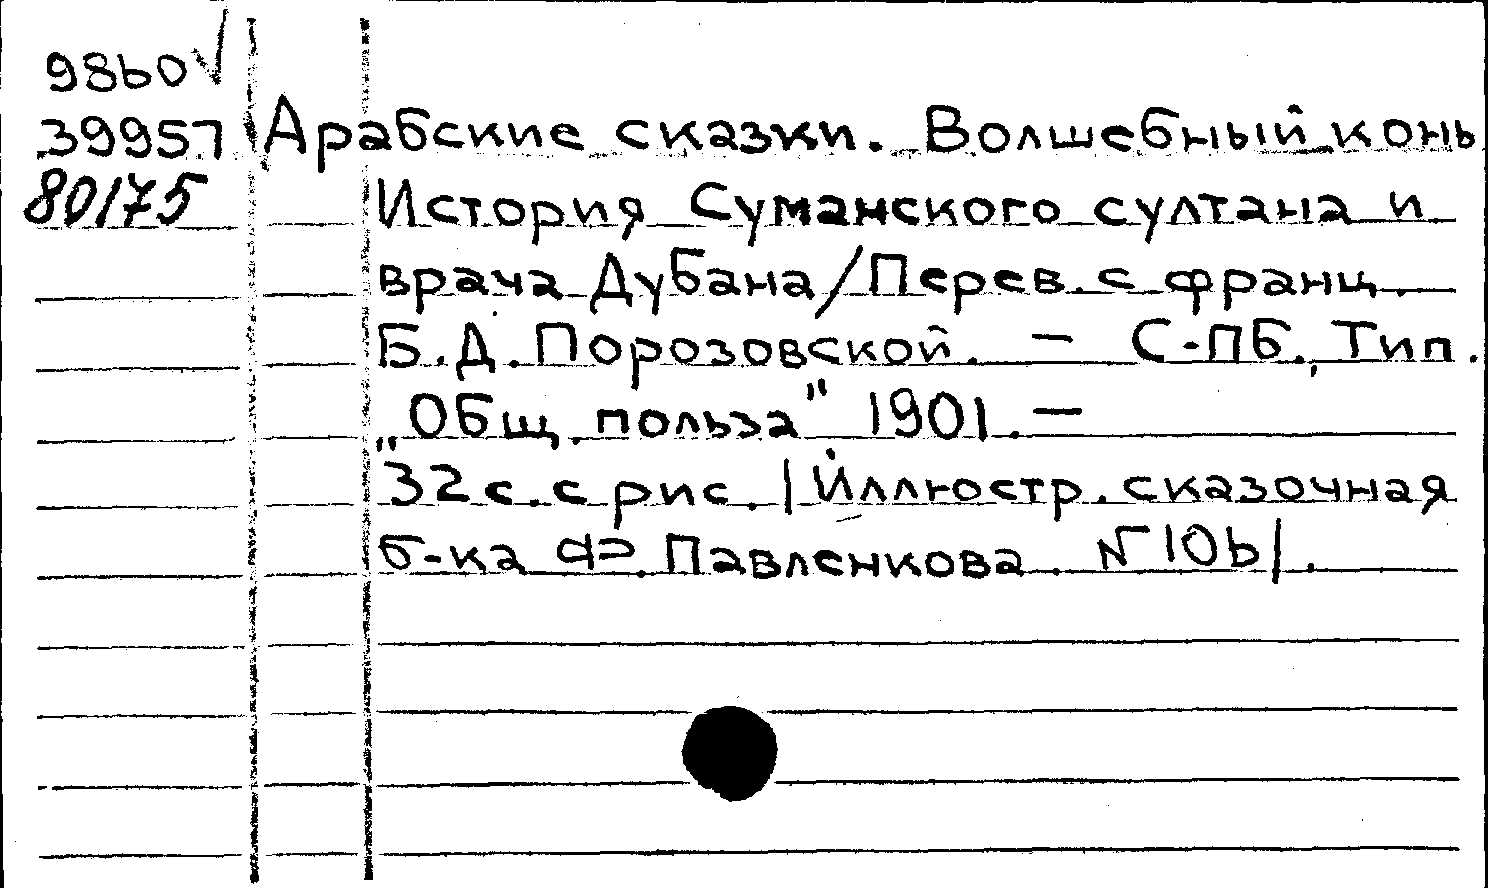 9860 √
39957 Арабские сказки. Волшебный конь
80175 История Суманского султана и
врача Дубана/Перев. с франц.
Б.Д. Порозовской. — С-ПБ., Тип.
„Общ. польза" 1901. —
32 с. с рис. |Иллюстр. сказочная
б-ка Ф. Павленкова. № 106|.